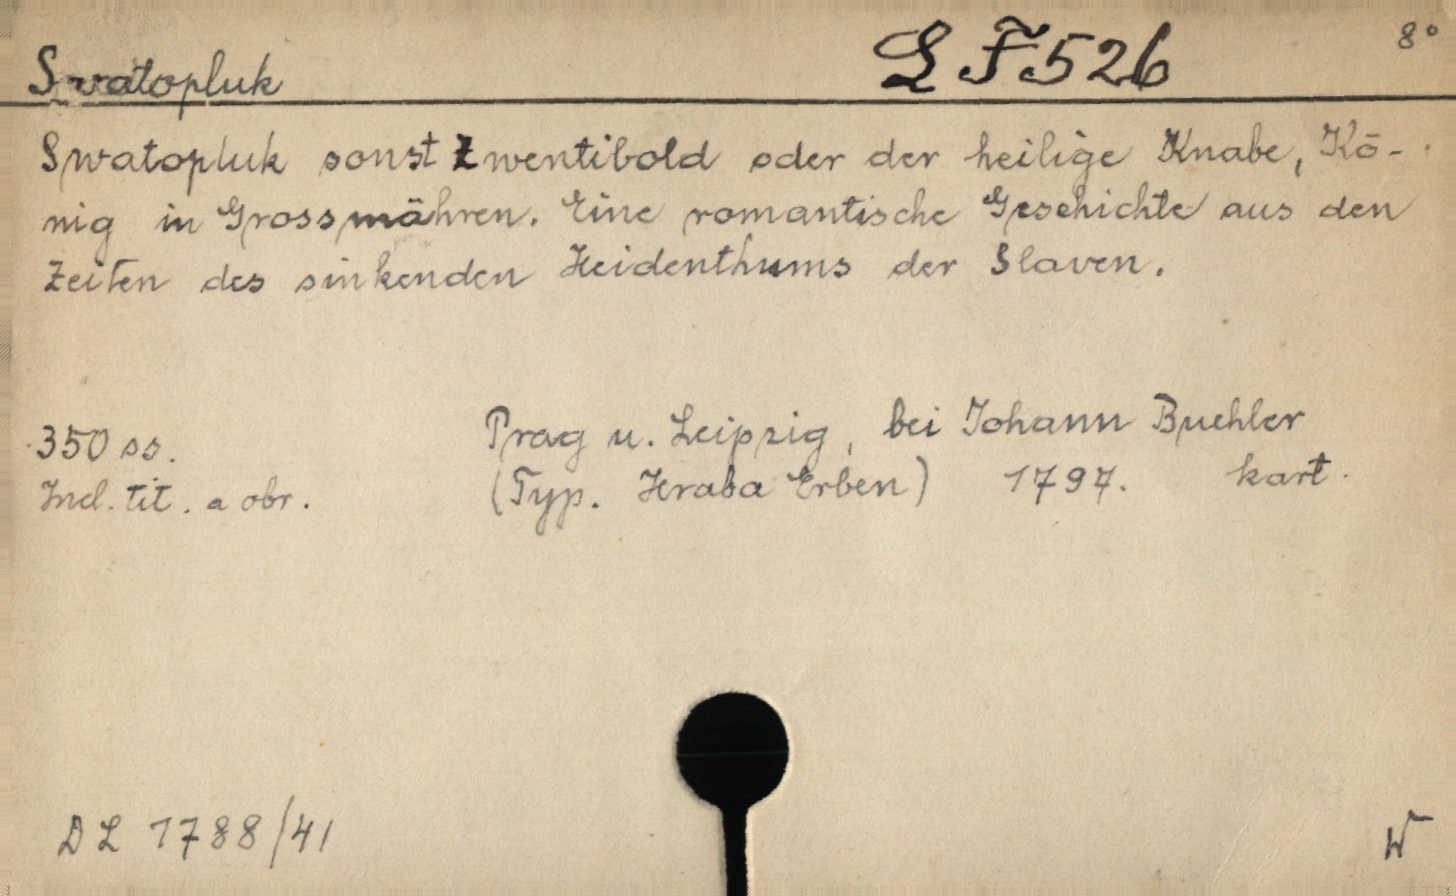 Swatopluk LF526 8°
Swatopluk sonst Zwentibold oder der heilige Knabe, Kö-
nig in Grossmähren. Eine romantische Geschichte aus den
Zeiten des sinkenden Heidenthums der Slaven.
350 ss. Prag u. Leipzig, bei Johann Buehler
Incl. tit. a obr. (Typ. Hraba Erben) 1797. kart.
DL 1788/41 W